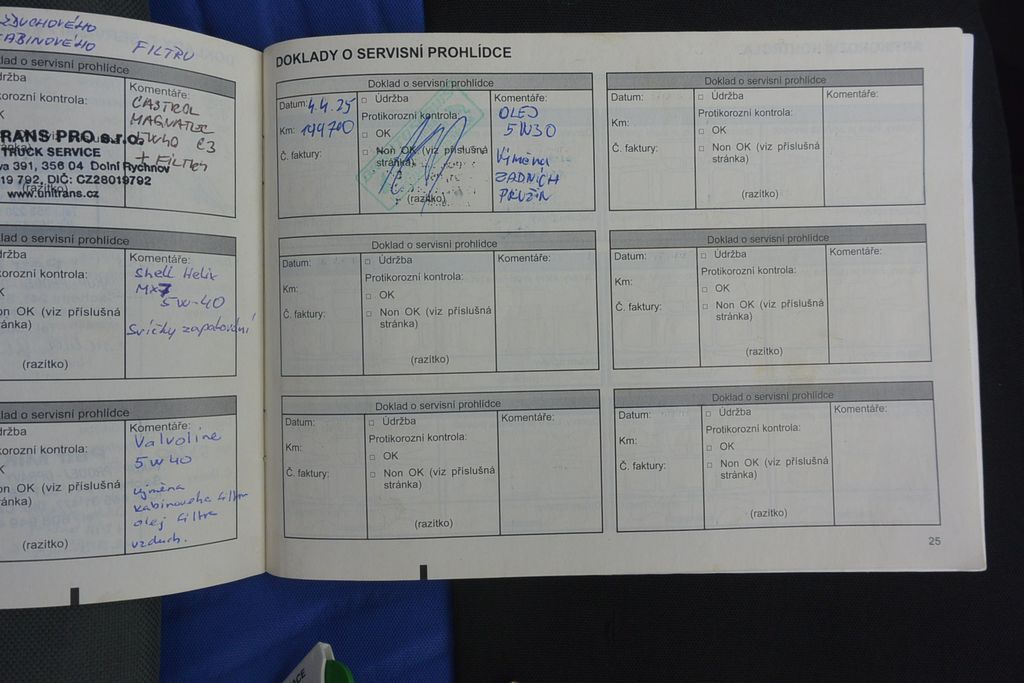 ZDUCHOVÉHO
ABINOVÉHO FILTRU
lad o servisní prohlídce
držba
Komentáře:
korozní kontrola:
CASTROL
MAGNATEC
5W40 C3
+ FILTRY
RANS PRO s.r.o.
TRUCK SERVICE
va 391, 356 04 Dolní Rychnov
19 792, DIČ: CZ28019792
www.unitrans.cz
lad o servisní prohlídce
držba
Komentáře:
korozní kontrola:
Shell Helix
K
5W-40
on OK (viz příslušná
stránka)
Svíčky zapalování
(razítko)
lad o servisní prohlídce
držba
Komentáře:
korozní kontrola:
Valvoline
K
5W40
on OK (viz příslušná
stránka)
výměna
kabinového filtru
olej filtru
vzduch.
(razítko)
DOKLADY O SERVISNÍ PROHLÍDCE
Doklad o servisní prohlídce
Datum: 4.4.25
Km: 144700
Č. faktury:
Údržba
Protikorozní kontrola:
OK
Non OK (viz příslušná
stránka)
(razítko)
Komentáře:
OLEJ
5W30
Výměna
ZADNÍCH
PRUŽIN
Doklad o servisní prohlídce
Datum:
Km:
Č. faktury:
Údržba
Protikorozní kontrola:
OK
Non OK (viz příslušná
stránka)
(razítko)
Komentáře:
Doklad o servisní prohlídce
Datum:
Km:
Č. faktury:
Údržba
Protikorozní kontrola:
OK
Non OK (viz příslušná
stránka)
(razítko)
Komentáře:
Doklad o servisní prohlídce
Datum:
Km:
Č. faktury:
Údržba
Protikorozní kontrola:
OK
Non OK (viz příslušná
stránka)
(razítko)
Komentáře:
Doklad o servisní prohlídce
Datum:
Km:
Č. faktury:
Údržba
Protikorozní kontrola:
OK
Non OK (viz příslušná
stránka)
(razítko)
Komentáře:
Doklad o servisní prohlídce
Datum:
Km:
Č. faktury:
Údržba
Protikorozní kontrola:
OK
Non OK (viz příslušná
stránka)
(razítko)
Komentáře:
25